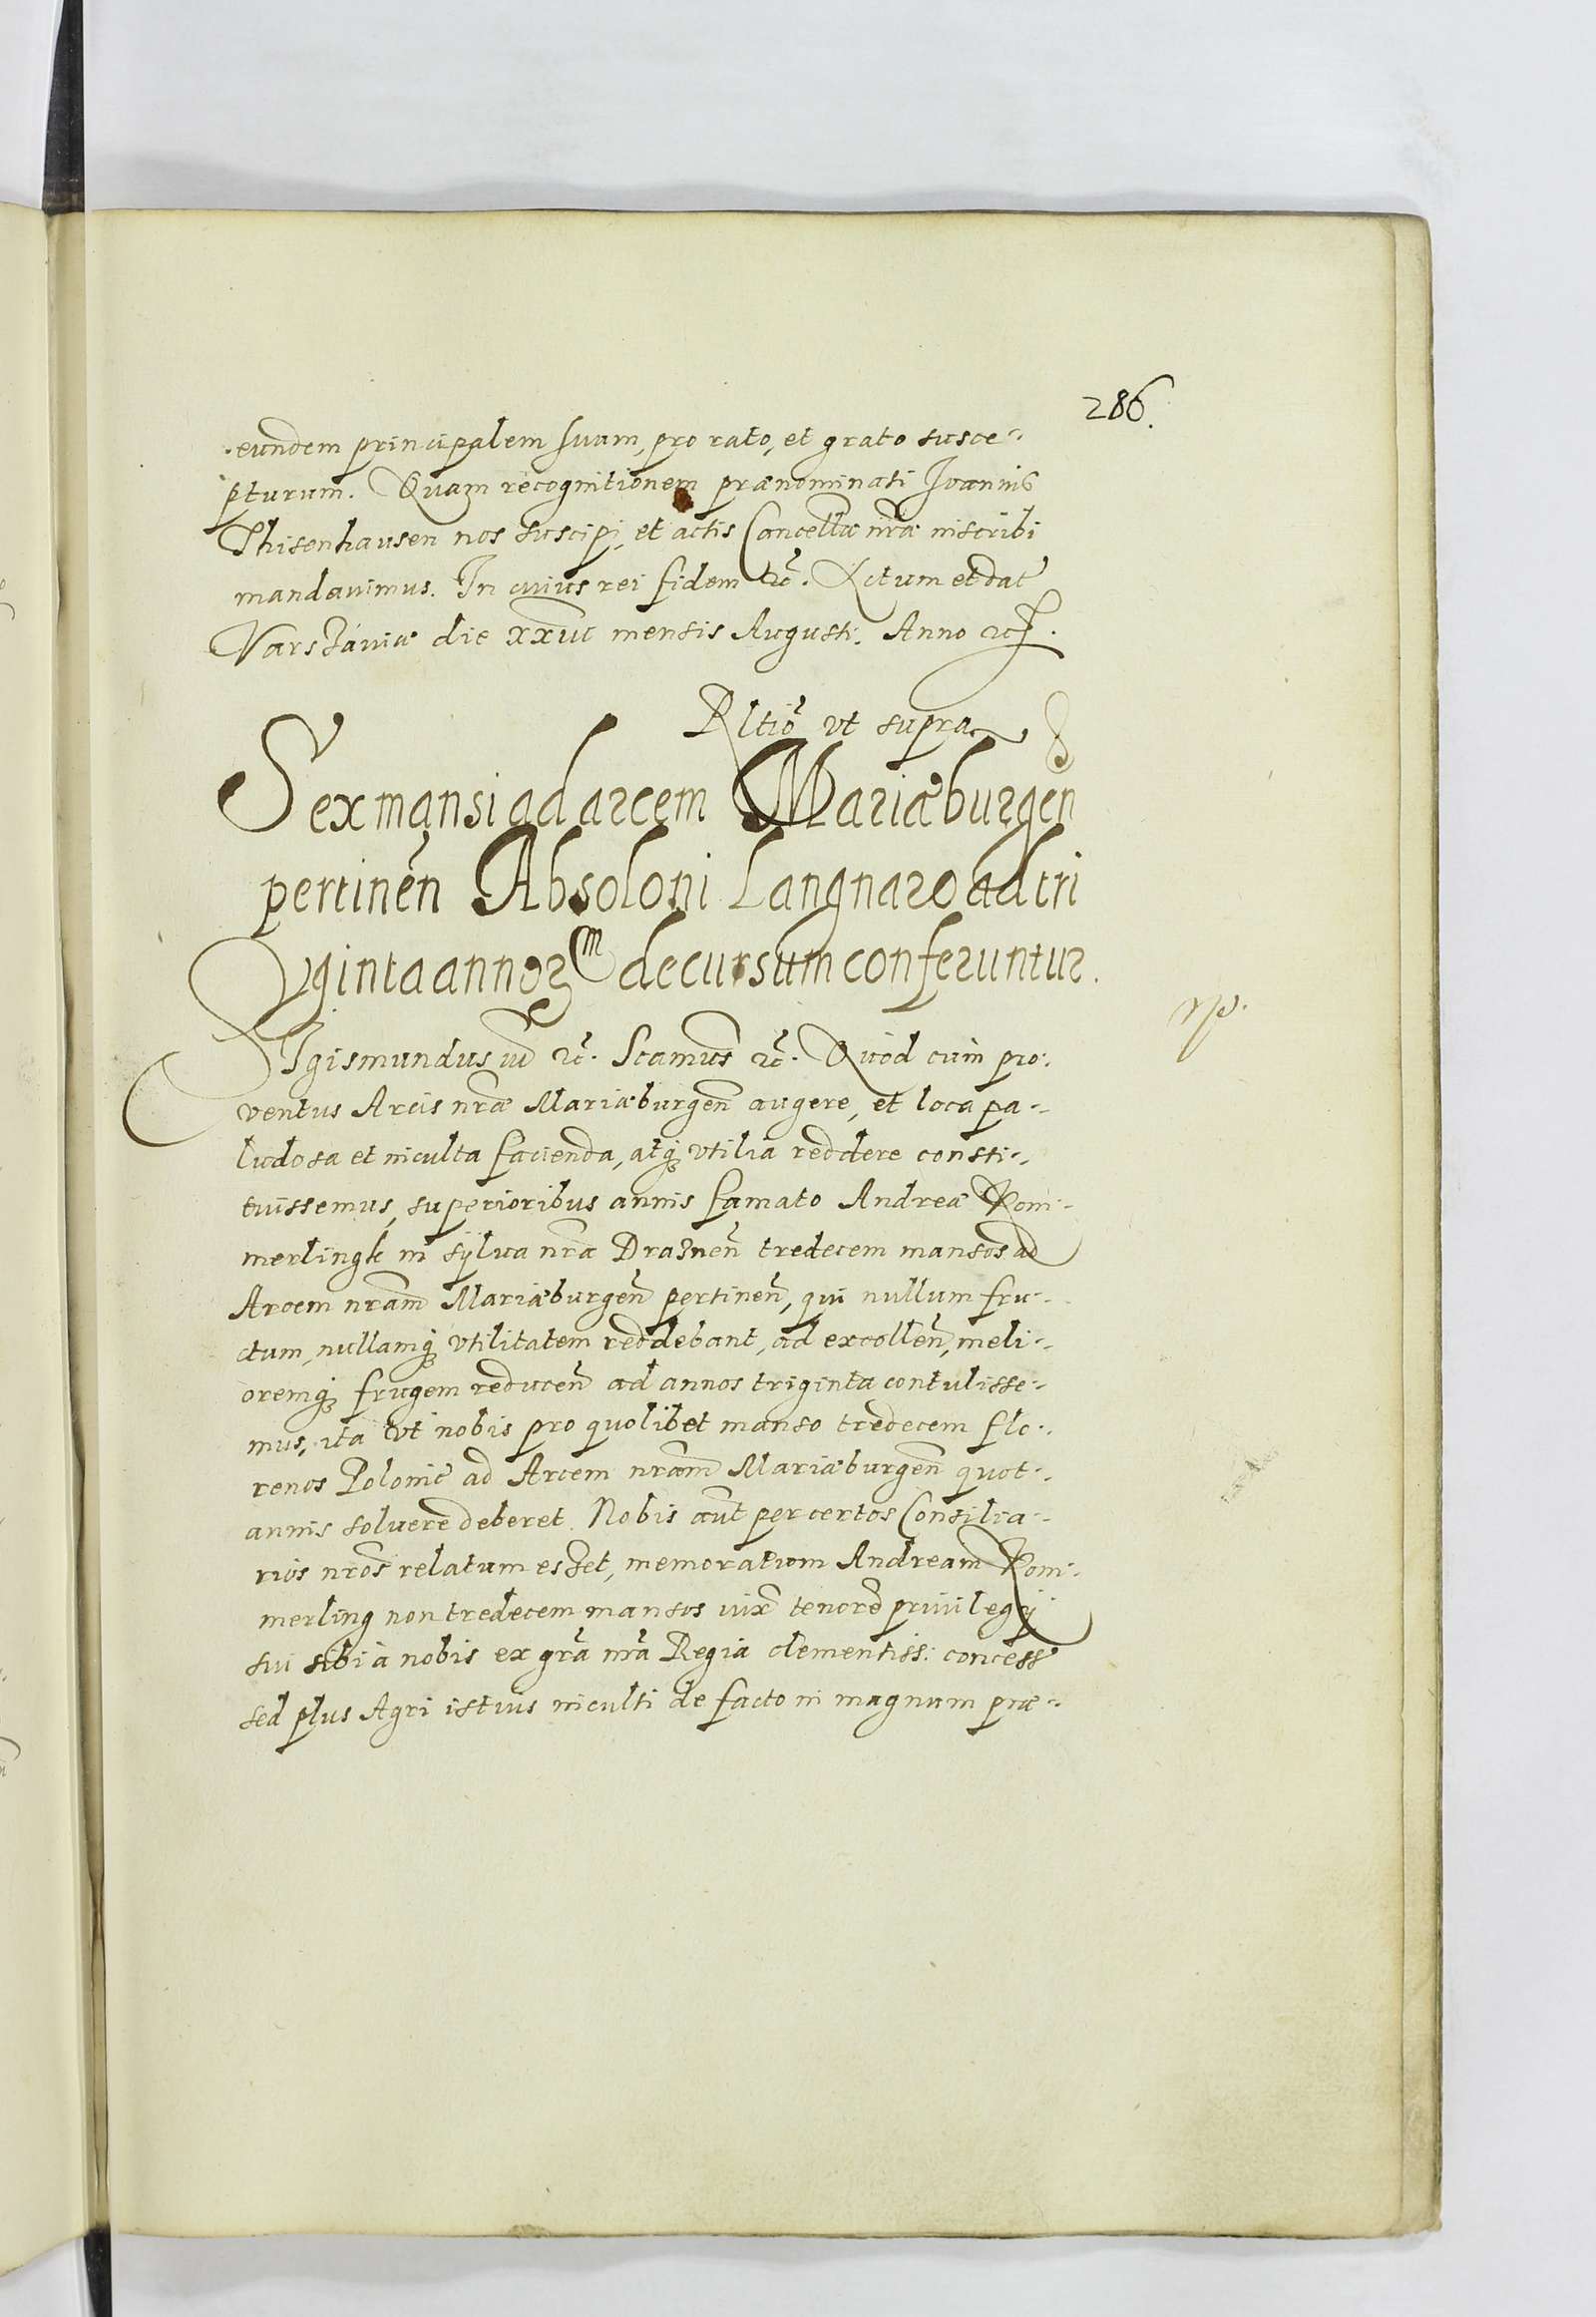 286.
eundem principalem suam, pro rato, et grato susce-
pturum. Quam recognitionem prænominati Joannis
Thisenhausen nos suscipi, et actis Cancellæ nræ inscribi
mandavimus. In cuius rei fidem etc. Actum et dat
Varszaviæ die xxvii mensis Augusti. Anno etc.
Rltio vt supra
Sex mansi ad arcem Mariæburgen
pertinen Absoloni Langnaro ad tri
ginta annorum decursum conferuntur.
SIgismundus iii etc. Scamus etc. Quod cum pro-
ventus Arcis nræ Mariæburgen augere, et loca pa-
ludosa et inculta facienda, atq; vtilia reddere consti-
tuissemus, superioribus annis famato Andreæ Kom-
merlingk in sylva nra Drasnen tredecem mansos ad
Arcem nram Mariæburgen pertinen, qui nullum fru-
ctum, nullamq; vtilitatem reddebant, ad excollen, meli-
oremq; frugem reducen ad annos triginta contulisse-
mus, ita vt nobis pro quolibet manso tredecem flo-
renos Polonic ad Arcem nram Mariæburgen quot-
annis soluere deberet. Nobis aut per certos Consilia-
rios nros relatum eszet, memoratum Andream Kom-
merling non tredecem mansos iux tenore privilegij
sui sibi à nobis ex gra nra Regia clementiss: concess
sed plus Agri istius inculti de facto in magnum præ-